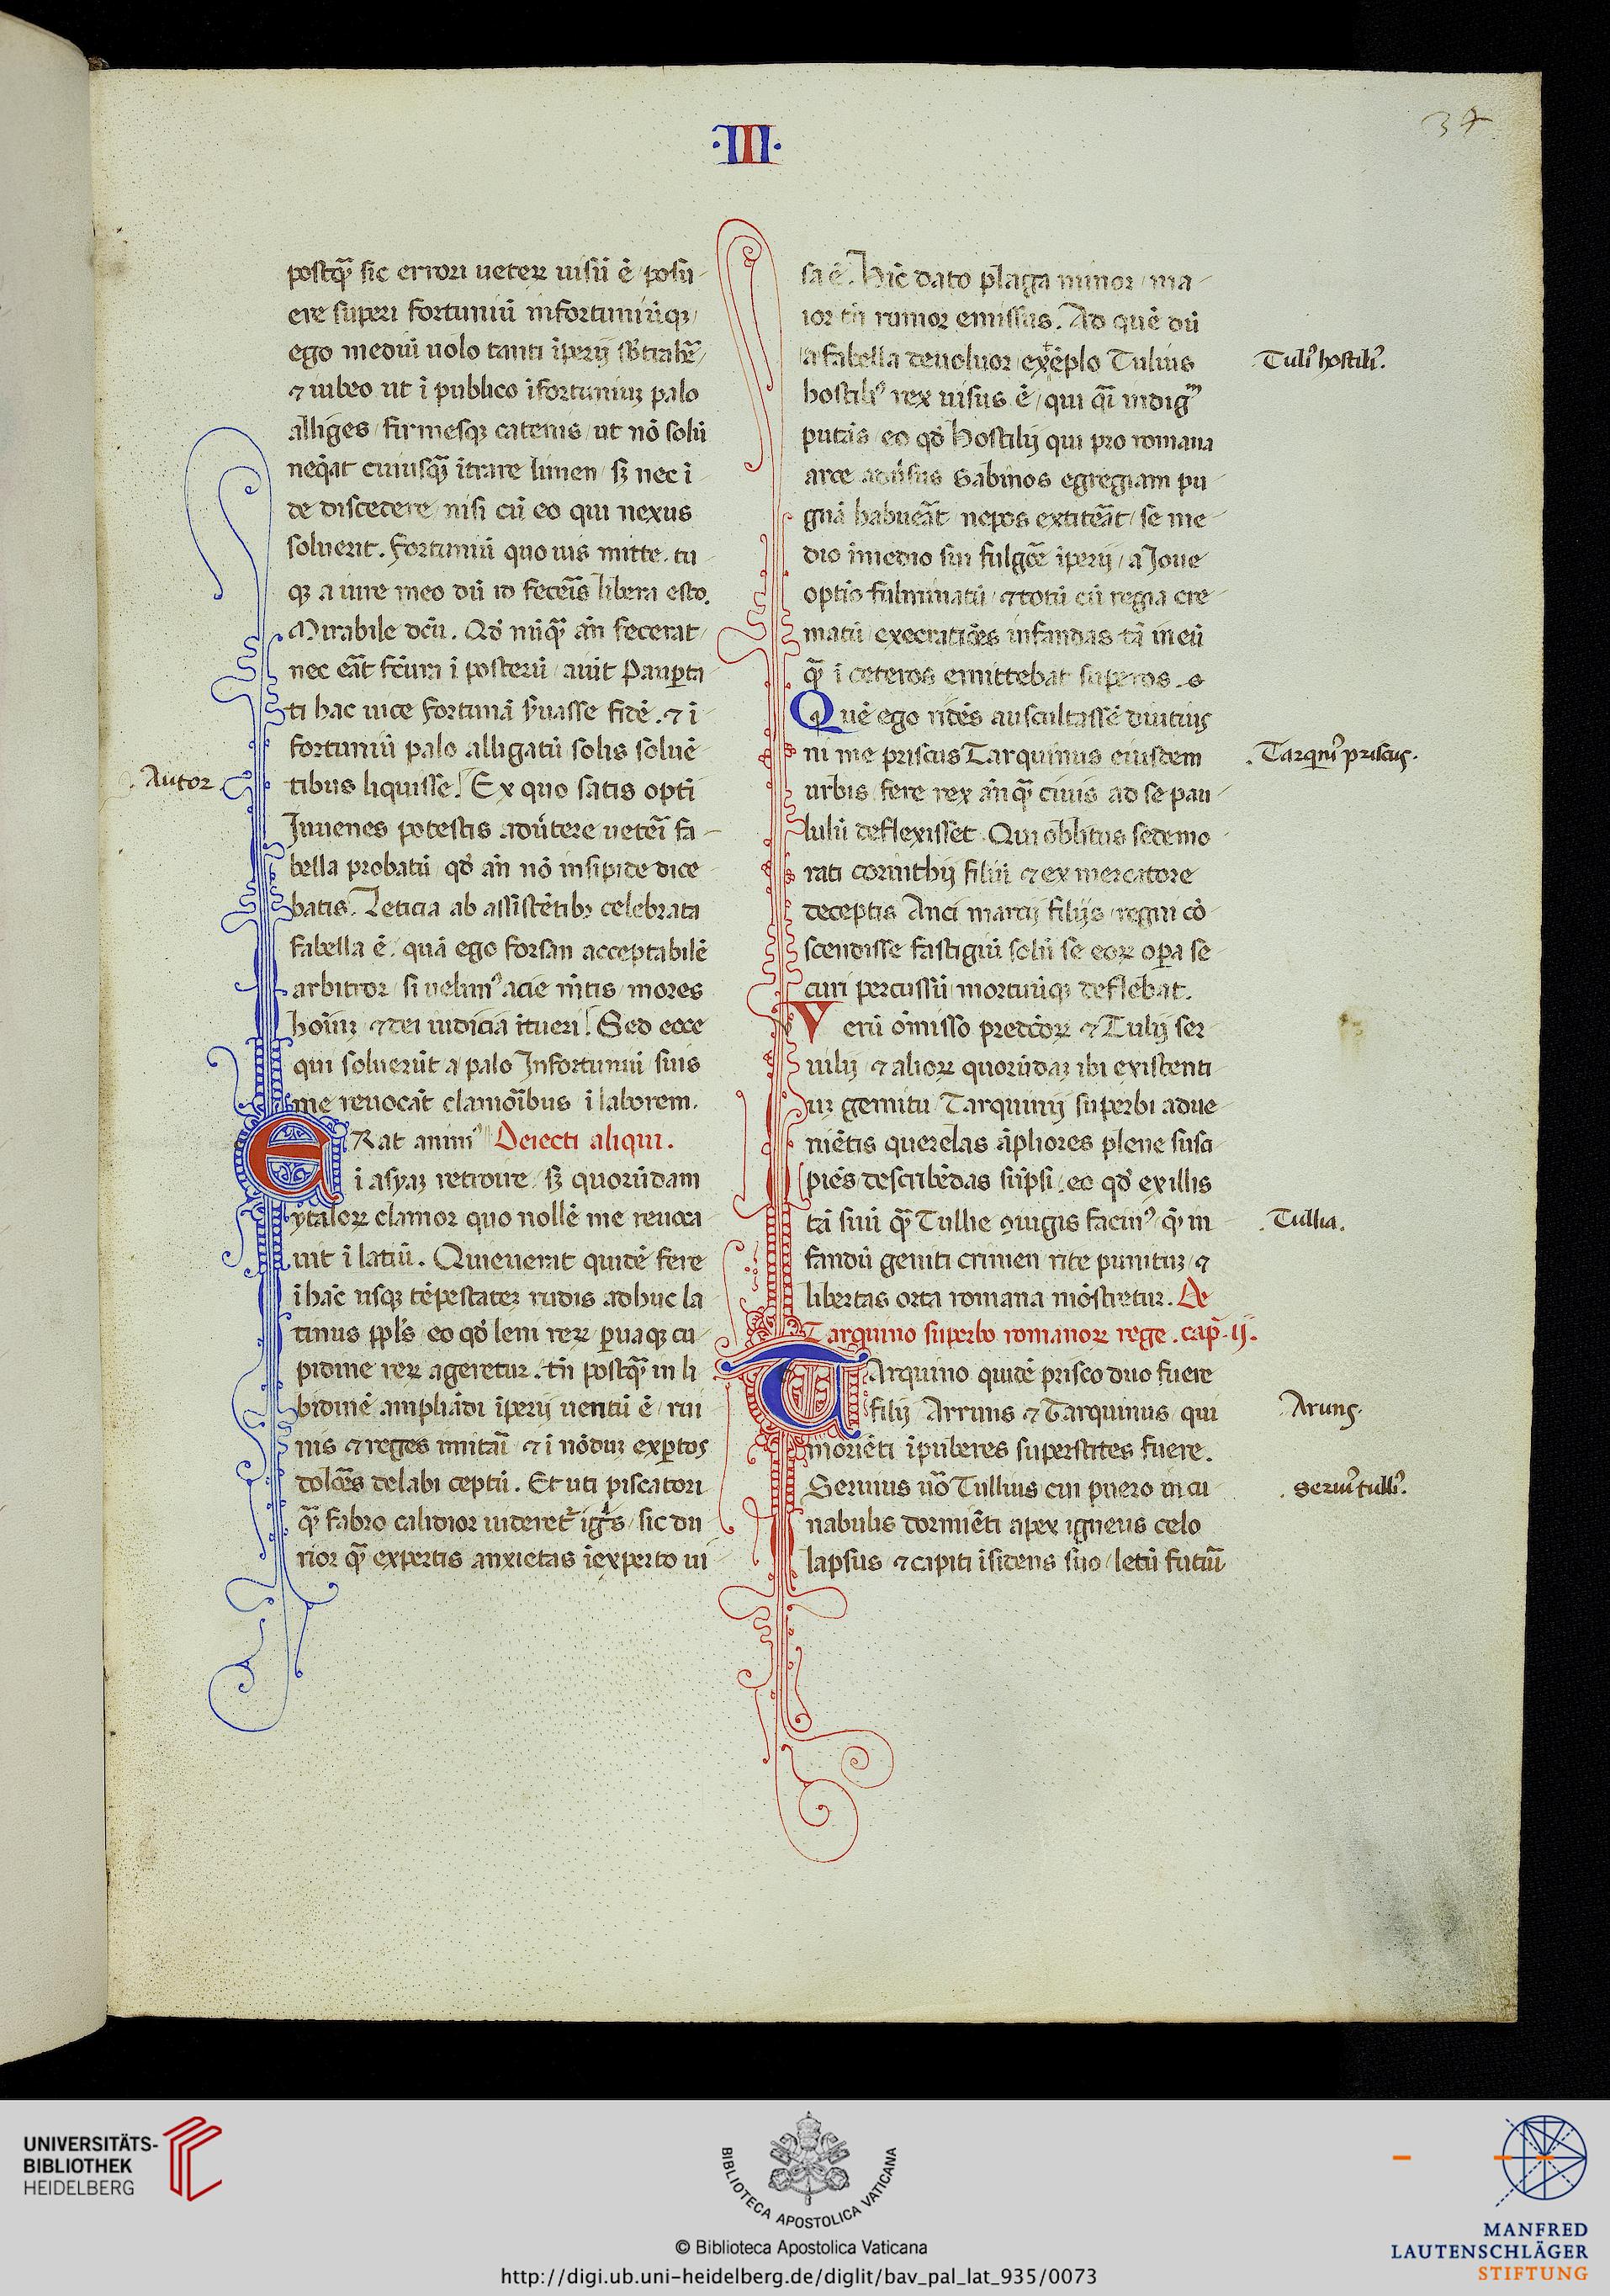 ·III·
34
postq̄ sic errori ueteꝝ uisū ē / posu-
ere superi fortuniū infortuniūqꝫ /
ego mediū uolo tanti īperij sb̄trahe͞ /
⁊ iubeo ut ī publico īfortuniuꝫ palo
alliges / firmesqꝫ catenis / ut nō solū
neq̇at cuiusq̄ ītrare limen / sꝫ nec ī
de discedere / nisi cū eo qui nexus
soluerit. Fortuniū quo uis mitte. tu
qꝫ a iure meo dū id feceīs libera esto.
Mirabile dc̄u. Qd̓ nūq̄ an̄ fecerat /
nec eāt fc̄ura ī posterū / aiūt Pauꝑta
ti hac uice fortunā ſ̓uasse fidē. ⁊ ī
fortuniū palo alligatū solis soluē
tibus liquisse. Ex quo satis opti
Autor
Juuenes potestis aduu̓tere ueteī fa-
bella probatū / qd̓ an̄ nō insipide dice
batis. Leticia ab assistētibꝫ celebrata
fabella ē. quā ego forsan acceptabilē
arbitror / si uelimꝰ acie m̄tis / mores
hoīuꝫ / ⁊ dei iudicia ītueri. Sed ecce
qui soluerūt a palo Infortuniū / suis
me reuocāt clamōibus ī laborem.
ERat animꝰ Deiecti aliqui.
i asyaꝫ retroire / sꝫ quorūdam
ytaloꝝ clamor quo nollē me reuoca
uit ī latiū. Quieuerat quidē fere
ī hāc usqꝫ tēpestateꝫ rudis adhuc la
tinus ppl̄s / eo qd̓ leni reꝝ ꝑuaqꝫ cu-
pidine reꝝ ageretur. tn̄ postq̄ in li
bidinē ampliādi īperij uentū ē / rui
nis ⁊ reges imitāi / ⁊ ī nōduꝫ exꝑtos
dolōēs delabi ceptū. Et uti piscatori
q̄ fabro calidior uideret̄ igīs / sic du
rior q̄ expertis anxietas īexperto ui
sa ē. Hīc dato plaga minor / ma-
ior tn̄ rumor emissus. Ad quē dū
a fabella deuoluor / extēplo Tulius
Tulꝰ hostilꝰ.
hostilꝰ rex uisus ē / qui q̄i indigᵐ
putās / eo qd̓ Hostilij qui pro romana
arce adu̓sus Sabinos egregiam pu
gnā habueāt / nepos extiteāt / se me-
dio īmedio sui fulgōe īperij / a Joue
optīo fulminatū / ⁊ totū cū regia cre-
matū / execratiōēs infandas tā in eū
q̄ ī ceteros emittebat superos.
Quē ego ridēs auscultassē diutius
ni me priscus Tarquinus eiusdem
Tarqnꝰ priscus.
urbis / fere rex anq̄ ciuis ad se pau-
lulū deflexisset. Qui oblitus se demo-
rati corinthij filiū / ⁊ ex mercatore
deceptis Anci marcij filijs / regni cō-
scendisse fastigiū / solū se eoꝝ oꝑa se-
curi percussū / mortuūqꝫ deflebat.
Verū om̄isso predc̄oꝝ / ⁊ Tulij ser-
uilij / ⁊ alioꝝ quorūdaꝫ ibi existenti
uꝫ gemitu / Tarquinij superbi adue-
niētis querelas āpliores plene susci-
piēs / describēdas sūpsi. eo qd̓ ex illis
tā suū q̄ Tullie ꝯiugis facinꝰ / q̄ in
Tullia.
fandū geniti crimen rite punituꝫ / ⁊
libertas orta romana mōstretur. De
Tarquino superbo romanoꝝ rege. cap̄. ij.
TArquino quidē prisco duo fuere
filij Arruns ⁊ Tarquinus / qui
Aruns.
moriēti īpuberes superstites fuere.
Seruius uō Tullius cui puero in cu-
Seruiꝰ tulliꝰ.
nabulis dormiēti apex igneus celo
lapsus / ⁊ capiti īsidens suo / letū futuū
UNIVERSITÄTS-
BIBLIOTHEK
HEIDELBERG
BIBLIOTECA APOSTOLICA VATICANA
© Biblioteca Apostolica Vaticana
http://digi.ub.uni-heidelberg.de/diglit/bav_pal_lat_935/0073
MANFRED
LAUTENSCHLÄGER
STIFTUNG